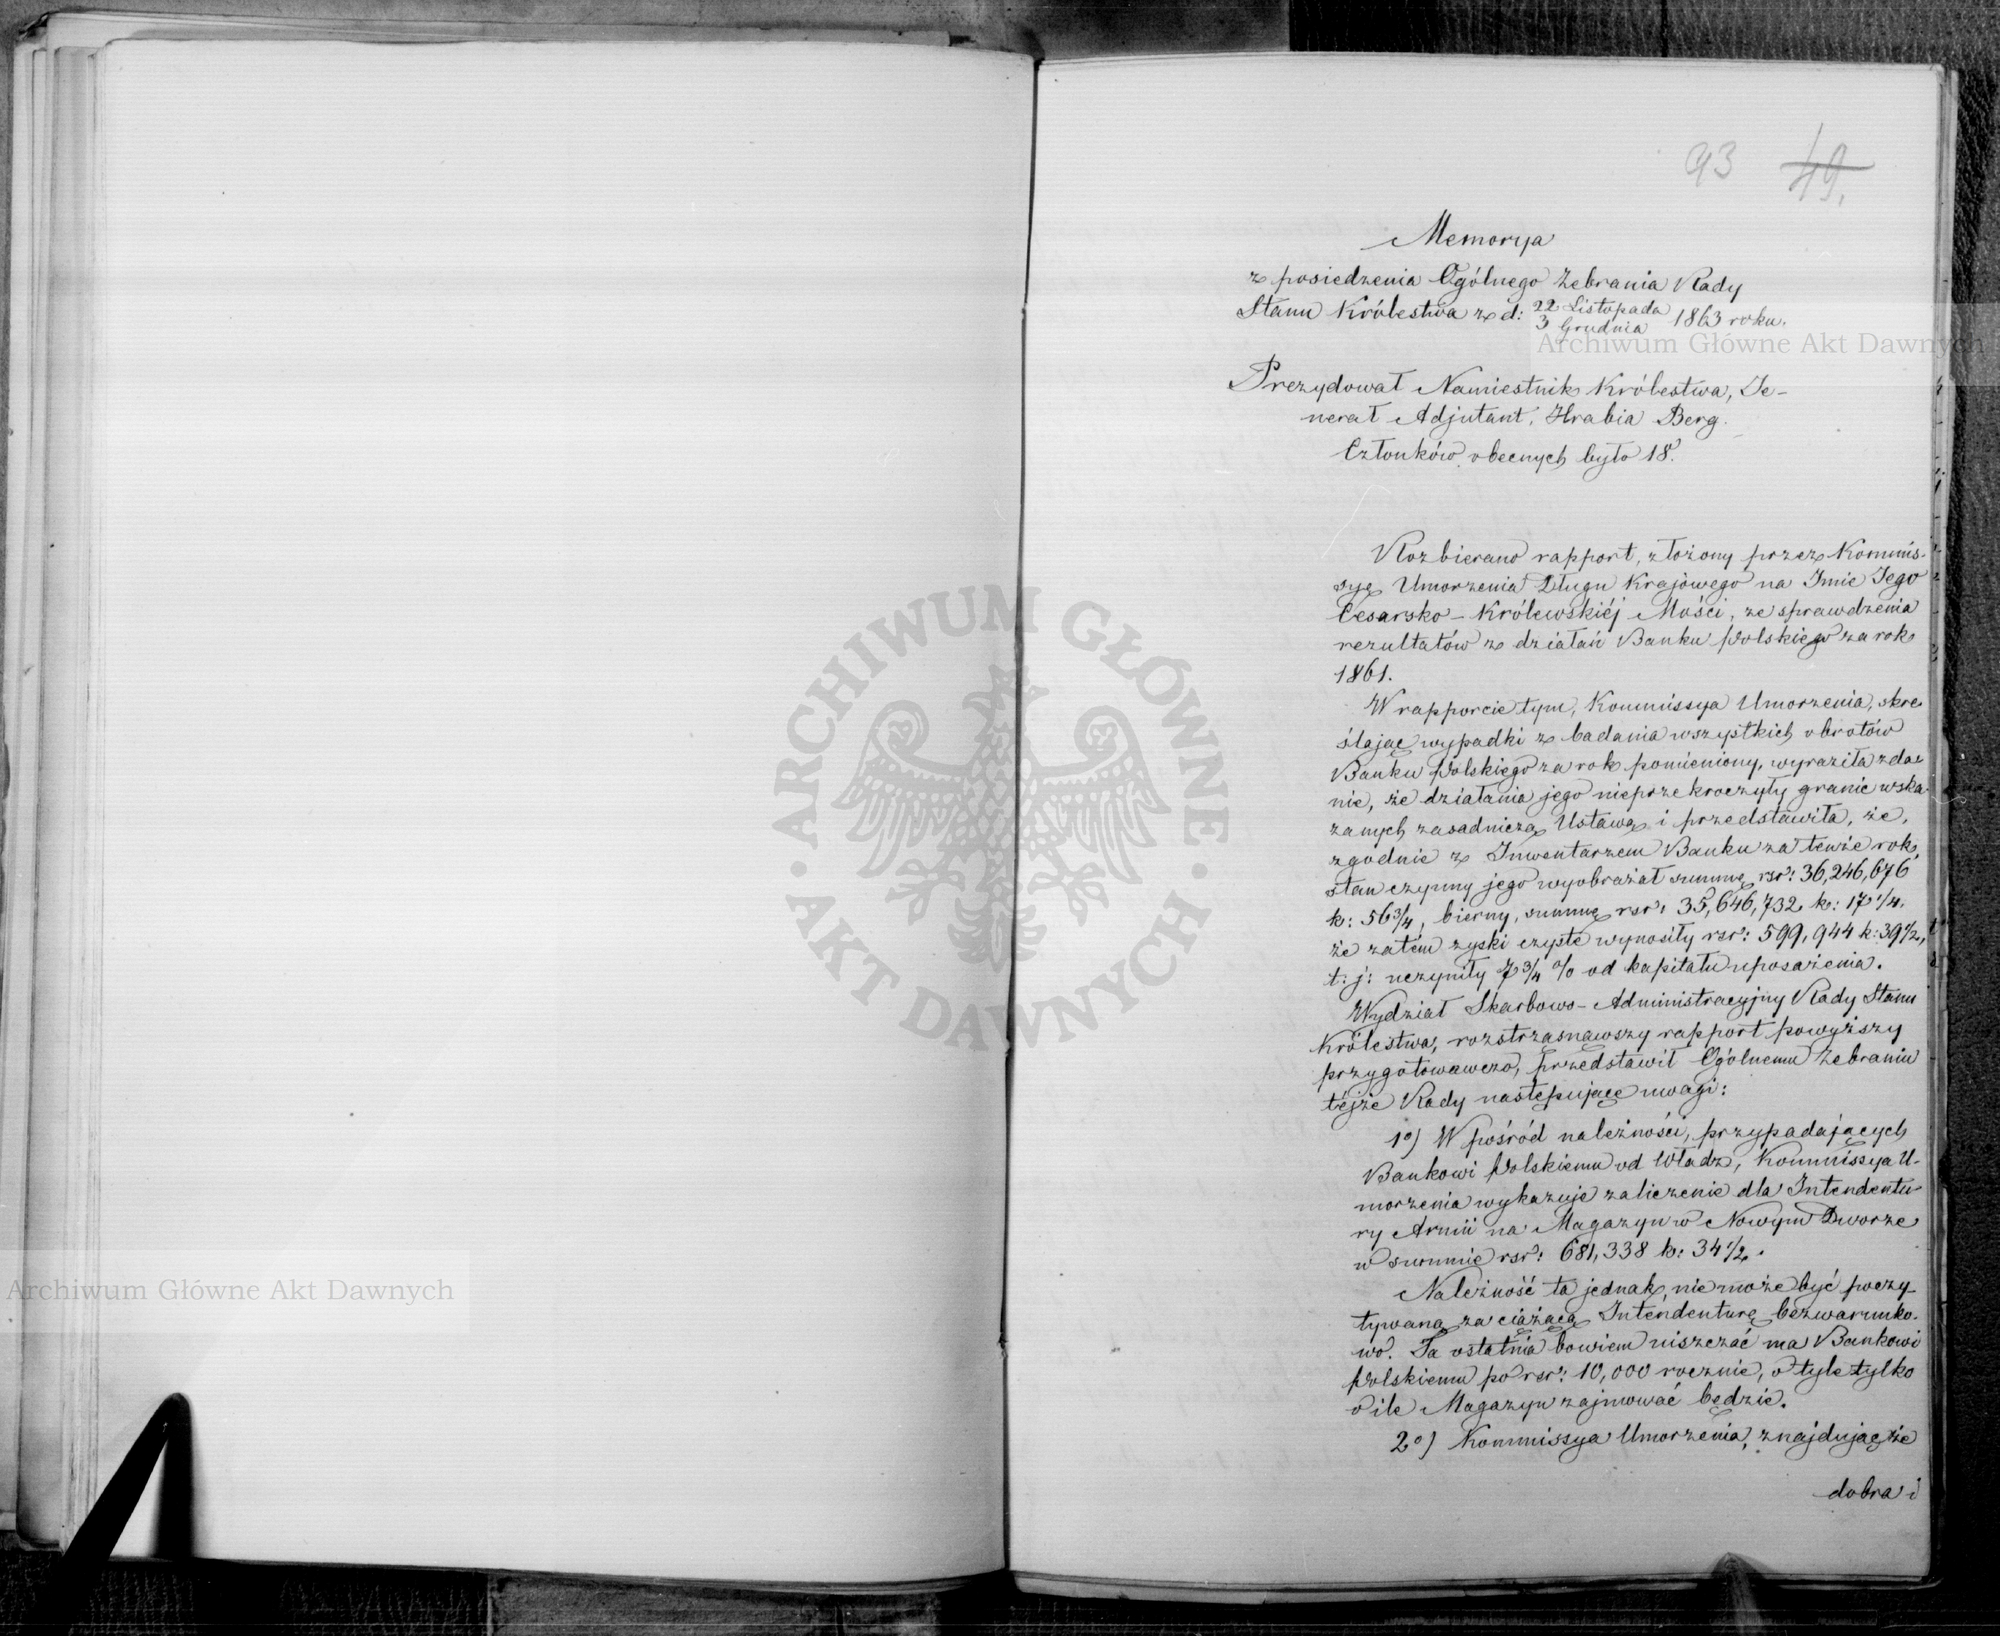 93 49.
Memorya
z posiedzenia Ogólnego Zebrania Rady
Stanu Królestwa z d: 22 Listopada
3 Grudnia 1863 roku.
Archiwum Główne Akt Dawnych
Prezydował Namiestnik Królestwa, Je-
nerał Adjutant, Hrabia Berg.
Członków obecnych było 18.
Rozbierano rapport, złożony przez Kommis-
syę Umorzenia Długu Krajowego na Imie Jego
Cesarsko-Królewskiéj Mości, ze sprawdzenia
rezultatów z działań Banku Polskiego za rok
1861.
W rapporcie tym, Kommissya Umorzenia, skre-
ślając wypadki z badania wszystkich obrotów
Banku Polskiego za rok pomieniony, wyraziła zda-
nie, że działania jego nieprzekroczyły granic wska-
zanych zasadniczą Ustawą i przedstawiła, że,
zgodnie z Inwentarzem Banku za tenże rok,
stan czynny jego wyobrażał summę rsr: 36,246,676
k: 56 3/4, bierny, summę rsr: 35,646,732 k: 17 1/4.
że zatém zyski czyste wynosiły rsr: 599,944 k: 39 1/2,
t: j: uczyniły 7 3/4 % od kapitału uposażenia.
Wydział Skarbowo-Administracyjny Rady Stanu
Królestwa, rozstrząsnąwszy rapport powyższy
przygotowawczo, przedstawił Ogólnemu Zebraniu
téjże Rady następujące uwagi:
1o) W pośród należności, przypadających
Bankowi Polskiemu od Władz, Kommissya U-
morzenia wykazuje zaliczenie dla Intendentu-
ry Armii na Magazyn w Nowym Dworze
w summie rsr: 681,338 k: 34 1/2.
Należność ta jednak, nie może być poczy-
tywaną za ciążącą Intendenturę bezwarunko-
wo. Ta ostatnia bowiem uiszczać ma Bankowi
Polskiemu po rsr: 10,000 rocznie, o tyle tylko
o ile Magazyn zajmować będzie.
2o) Kommissya Umorzenia, znajdując że
dobra i
ARCHIWUM GŁÓWNE · AKT DAWNYCH ·
Archiwum Główne Akt Dawnych